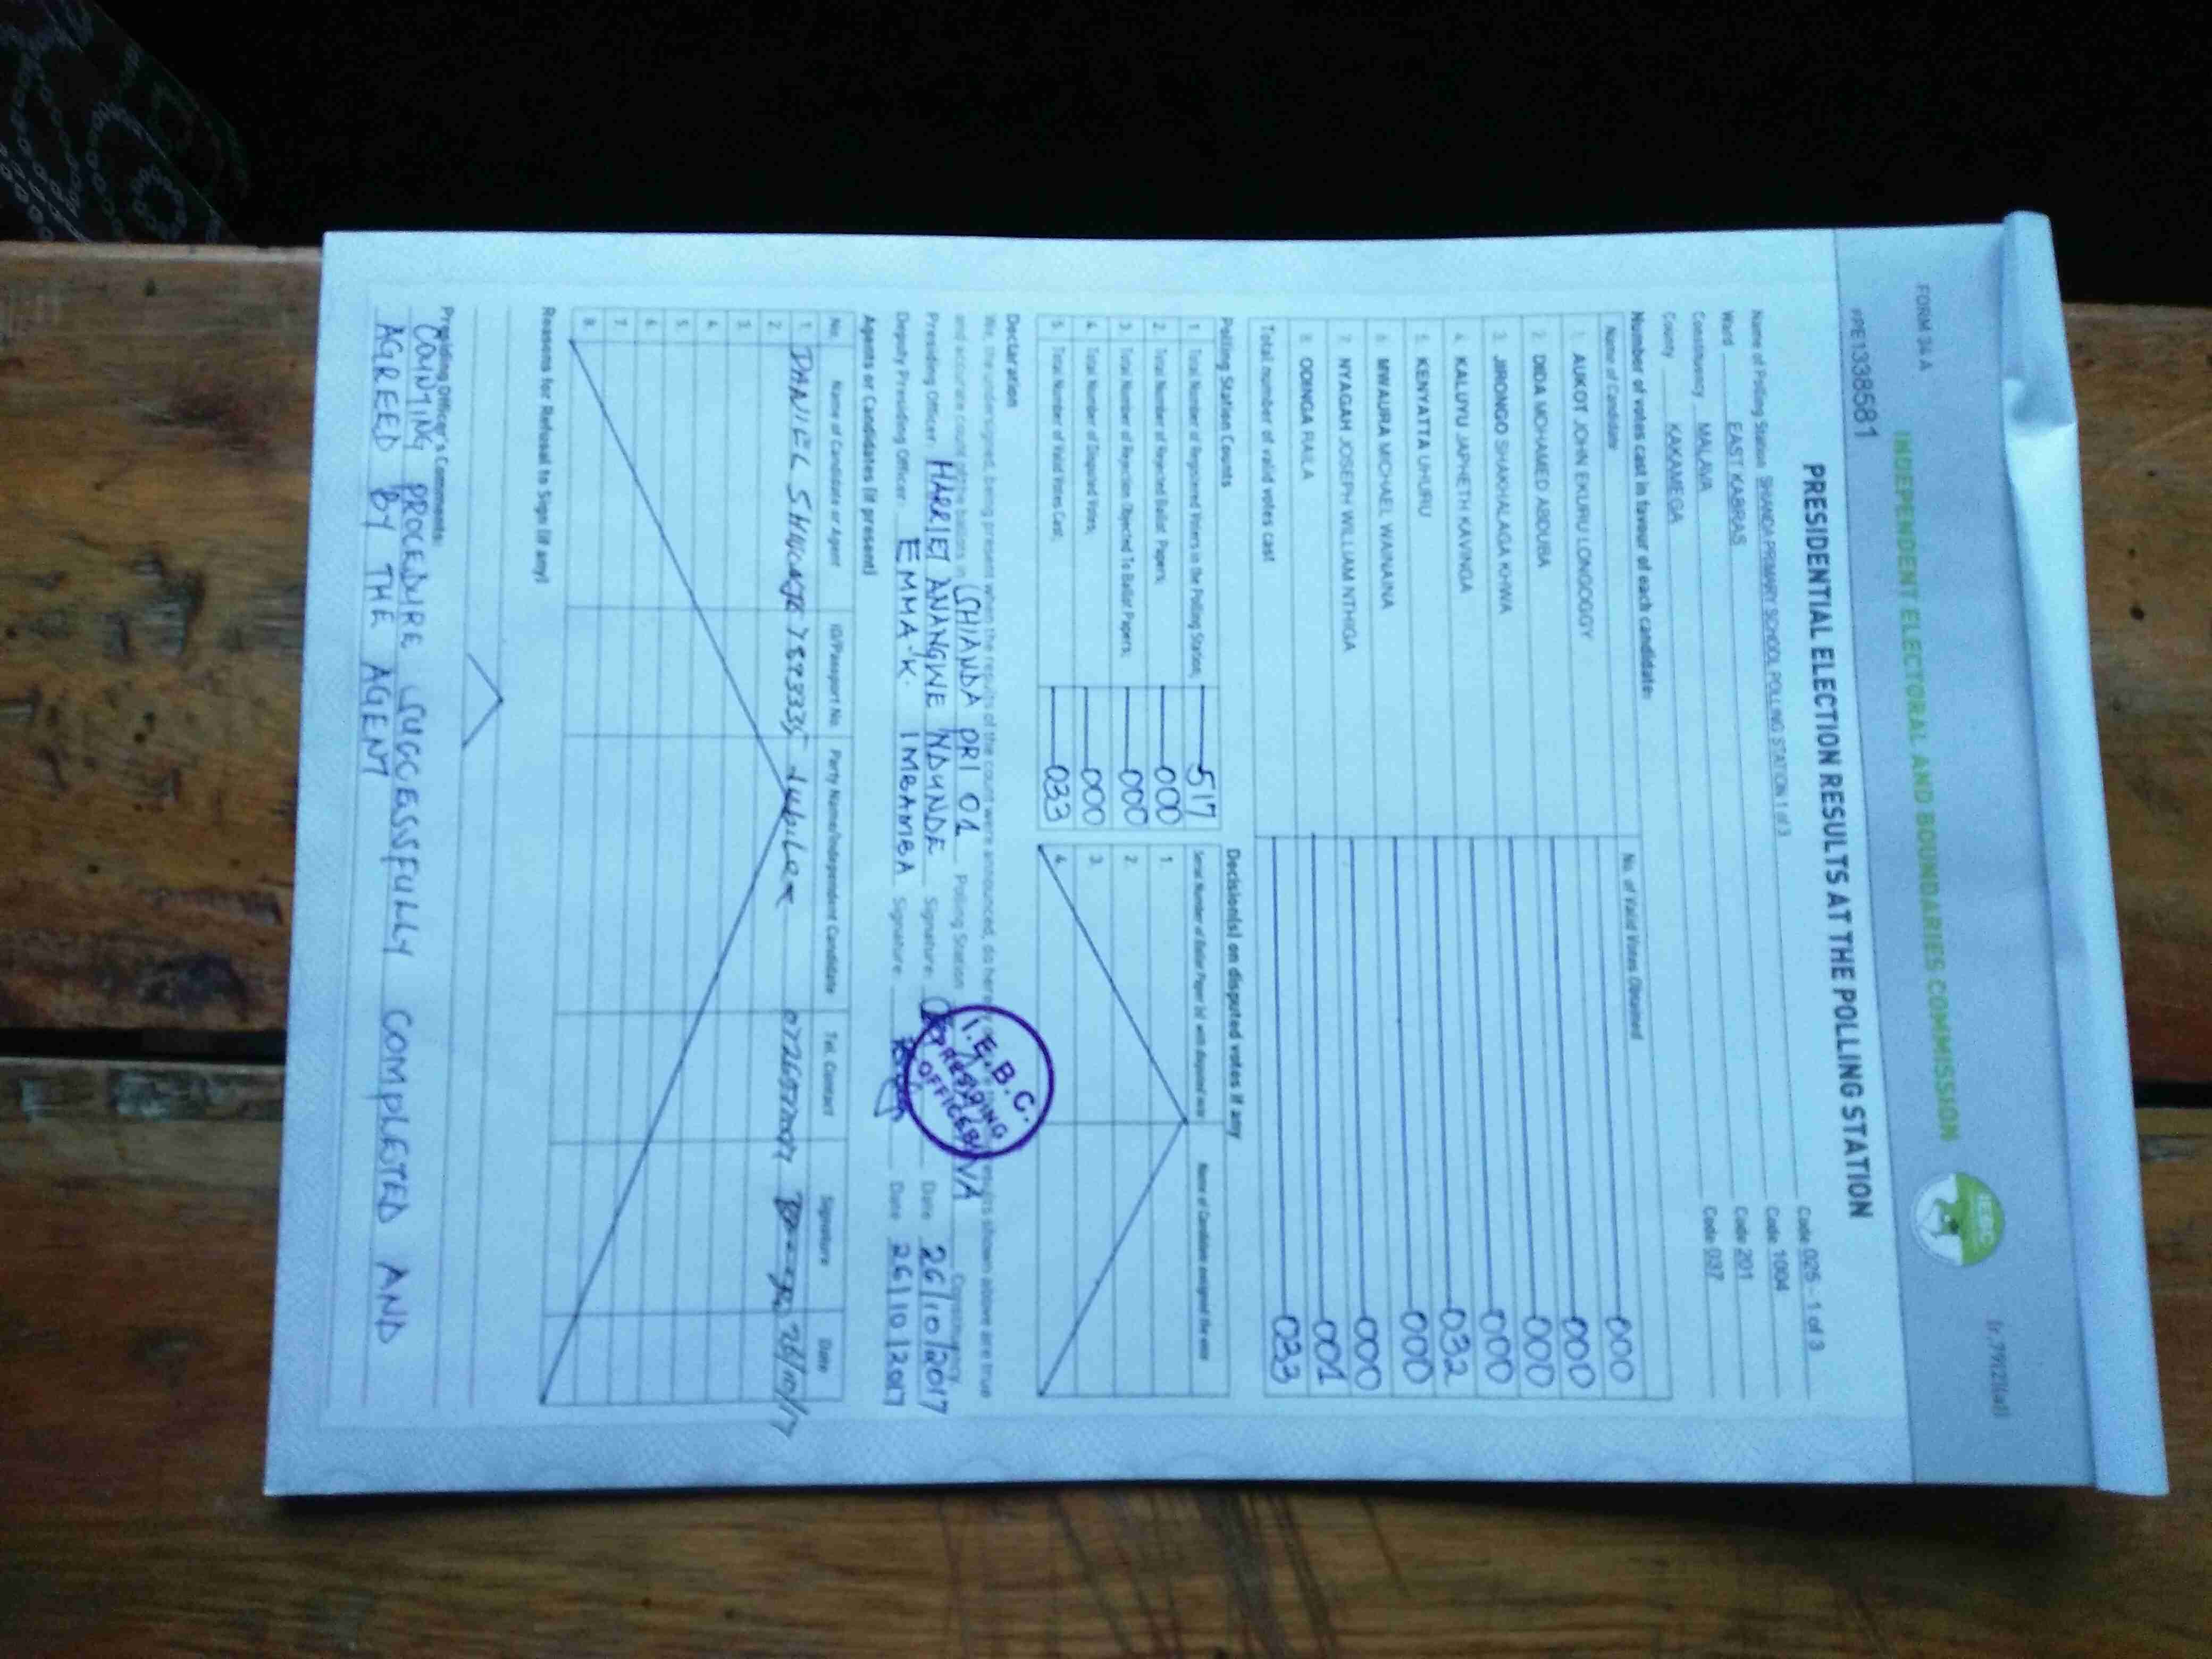 FORM 34 A
INDEPENDENT ELECTORAL AND BOUNDARIES COMMISSION
IEBC
PRESIDENTIAL ELECTION RESULTS AT THE POLLING STATION
Name of Polling Station SHANDA PRIMARY SCHOOL POLLING STATION 1 of 3 Code 025 - 1 of 3
Ward EAST KABRAS Code 1004
Constituency MALAVA Code 201
County KAKAMEGA Code 037
Number of votes cast in favour of each candidate:
Name of Candidate No. of Valid Votes Obtained
1. AUKOT JOHN EKURU LONGOGGY 000
2. DIDA MOHAMED ABDUBA 000
3. JIRONGO SHAKHALAGA KHWA 000
4. KALUYU JAPHETH KAVINGA 000
5. KENYATTA UHURU 032
6. MWAURA MICHAEL WAINAINA 000
7. NYAGAH JOSEPH WILLIAM NTHIGA 000
8. ODINGA RAILA 001
Total number of valid votes cast 033
Polling Station Counts
1. Total Number of Registered Voters in the Polling Station; 517
2. Total Number of Rejected Ballot Papers; 000
3. Total Number of Rejection Objected To Ballot Papers; 000
4. Total Number of Disputed Votes; 000
5. Total Number of Valid Votes Cast; 033
Decision(s) on disputed votes if any
Serial Number of Ballot Paper (s) with disputed vote Name of Candidate assigned the vote
1.
2.
3.
4.
Declaration
We, the undersigned, being present when the results of the count were announced, do hereby results shown above are true
and accurate count of the ballots in SHIANDA PRI 01 Polling Station Constituency
Presiding Officer: HARRIET ANANGWE NDUNDE Signature: Date 26/10/2017
Deputy Presiding Officer: EMMA K. IMBAMBA Signature Date 26/10/2017
I.E.B.C.
PRESIDING
OFFICER
Agents or Candidates (if present)
No. Name of Candidate or Agent ID/Passport No. Party Name/Independent Candidate Tel. Contact Signature Date
1. DANIEL Jubilee 26/10/17
2.
3.
4.
5.
6.
7.
8.
Reasons for Refusal to Sign (if any)
Presiding Officer's Comments:
COUNTING PROCEDURE SUCCESSFULLY COMPLETED AND
AGREED BY THE AGENT